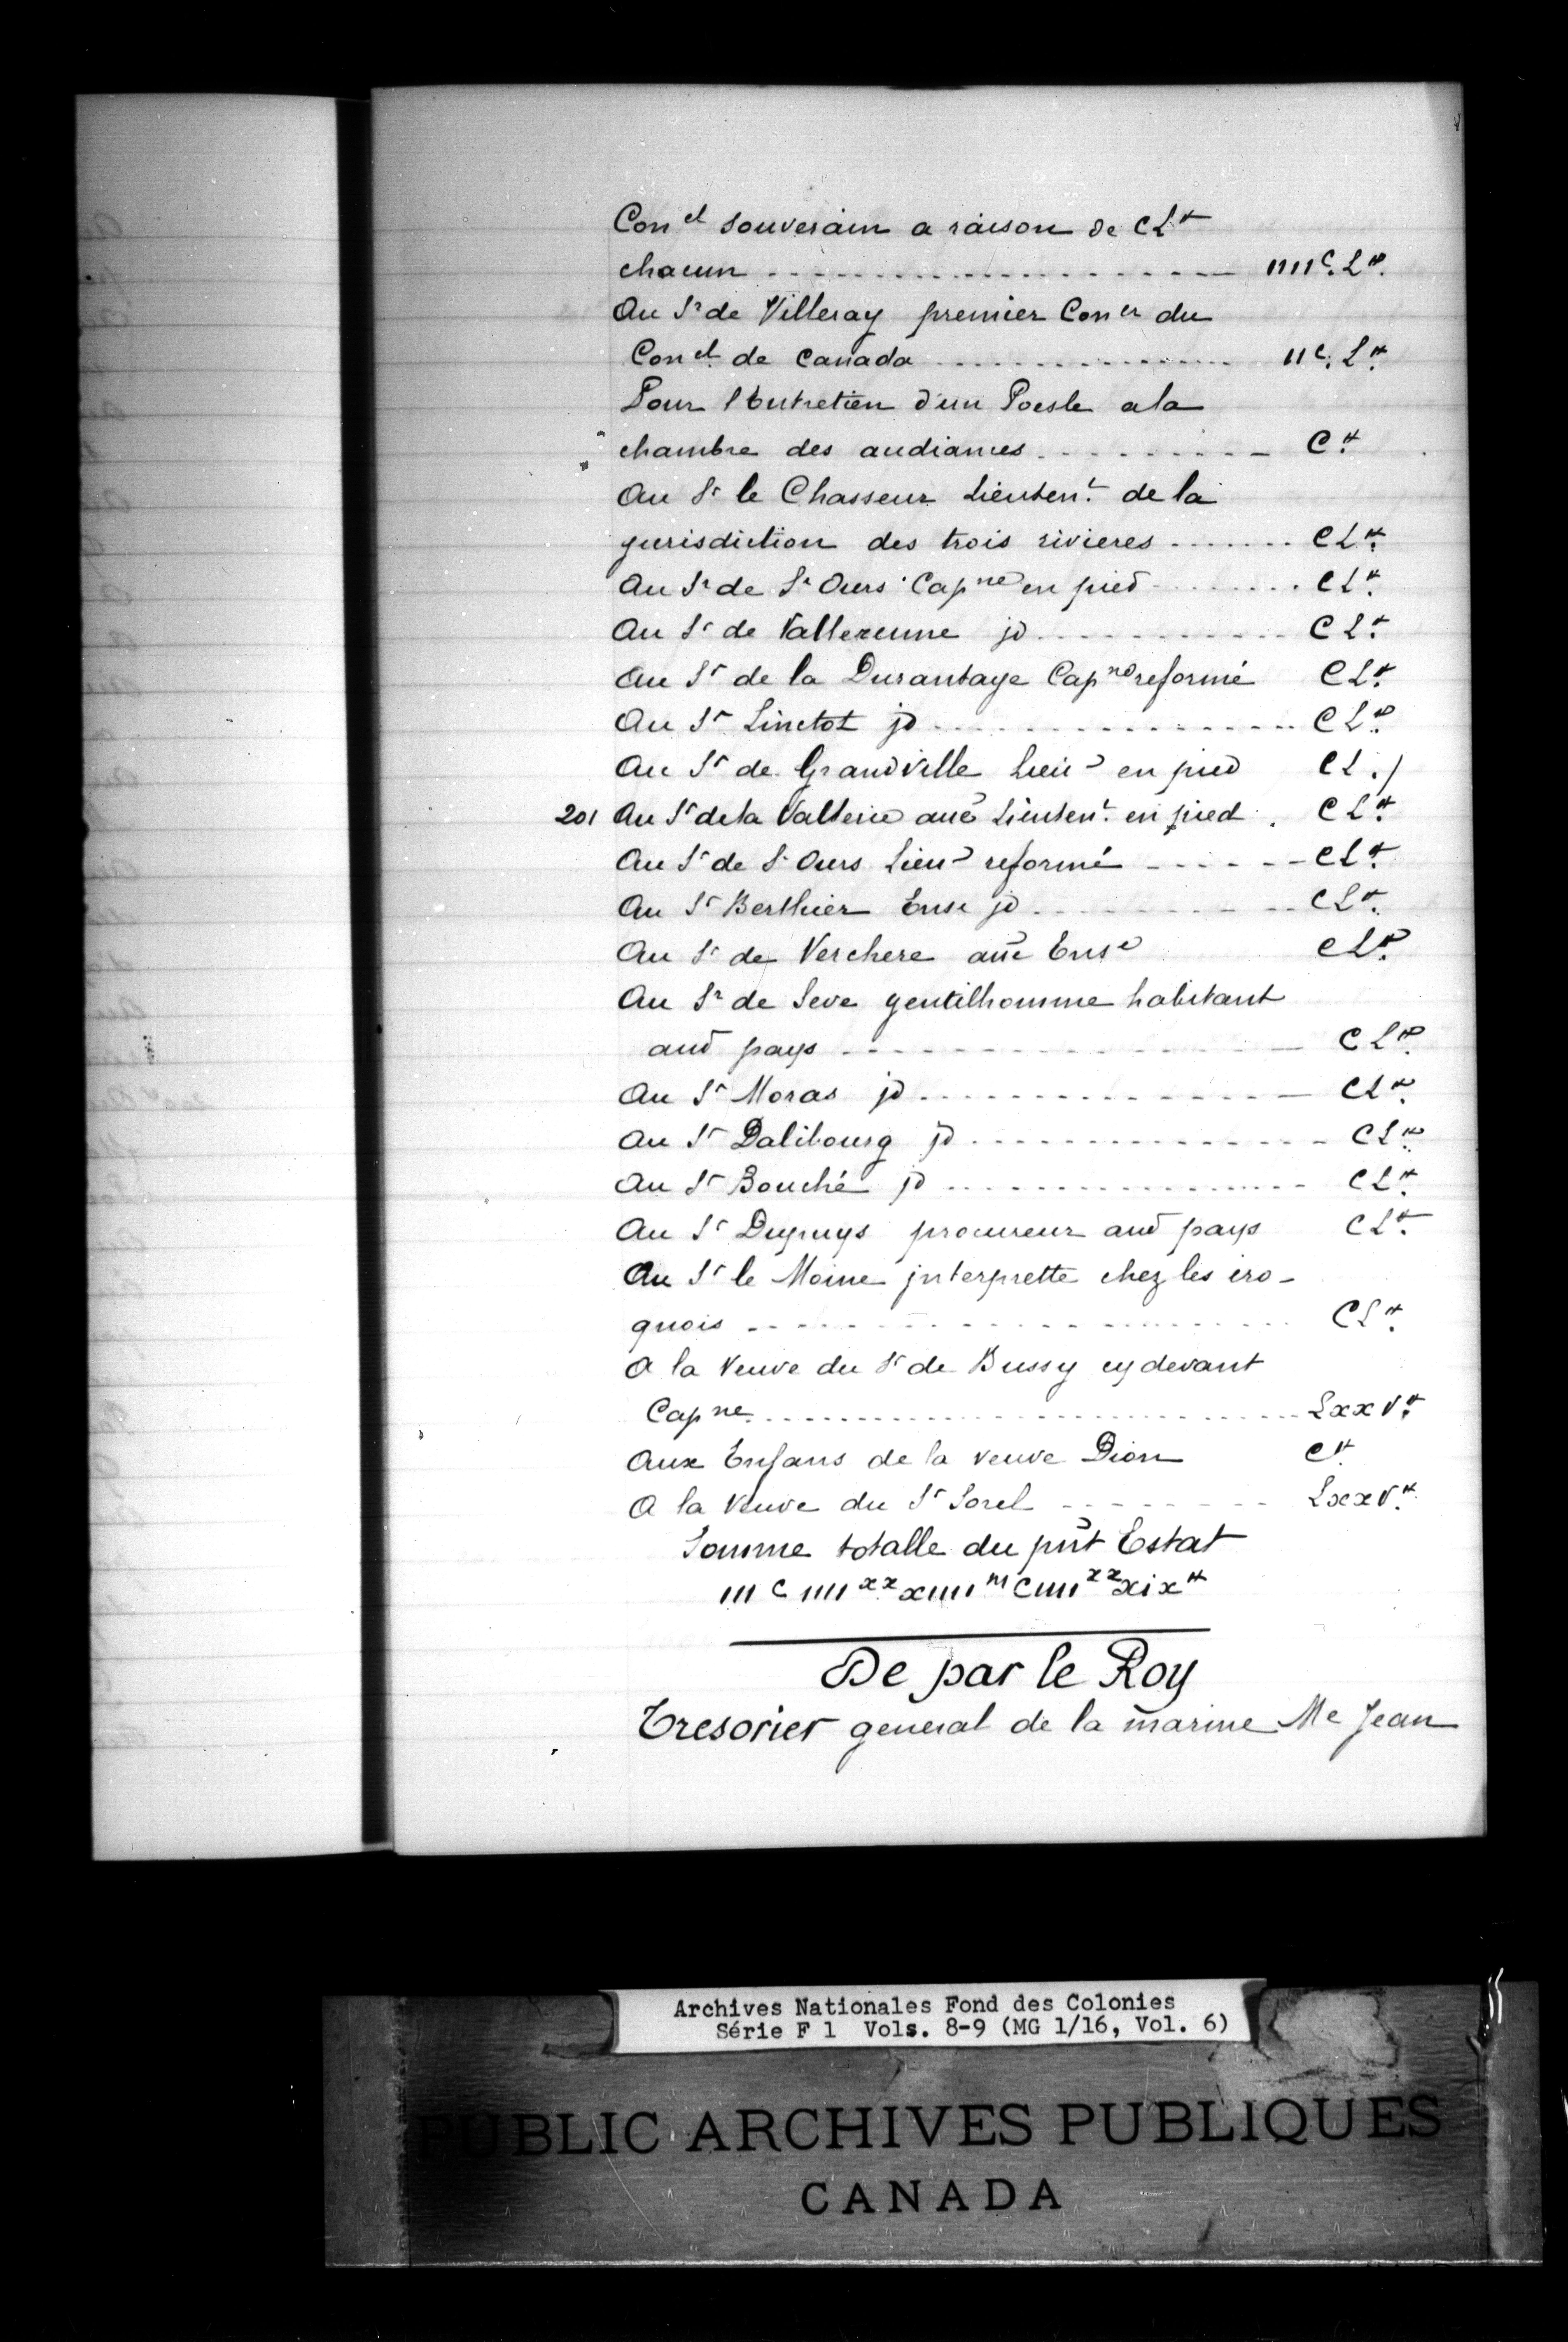 Con.el souverain a raison de CL#
chacun ---------- IIIIc.L#.
Au Sr de Villeray premier Coner du
Con.el de Canada ---------- IIc.L#.
Pour l'Entretien d'un Poesle a la
chambre des audiances ---------- C#.
Au Sr le Chasseur Lieutent. de la
jurisdiction des trois rivieres ------- CL#.
Au Sr de St Ours Capne en pied -------- CL#.
Au Sr de Vallerenne jd ---------- CL#.
Au Sr de la Durantaye Capne reformé CL#.
Au Sr Linctot jd ---------- CL#.
Au Sr de Grandville Lieut en pied CL./
201 Au Sr de la Valterie aué Lieutent. en pied . CL#.
Au Sr de St Ours Lieut reformé ------ CL#.
Au Sr Berthier Ense jd ---------- CL#.
Au Sr de Verchere aué Ense CL#.
Au Sr de Seve gentilhomme habitant
aud pays ---------- CL#.
Au Sr Moras jd ---------- CL#.
Au Sr Dalibourg jd ---------- CL#.
Au Sr Bouché jd ---------- CL#.
Au Sr Dupuys procureur aud pays CL#.
Au Sr le Moine jnterprette chez les iro-
quois ---------- CL#.
A la Veuve du Sr de Bussy cy devant
Capne ---------- LxxV#.
Aux Enfans de la veuve Dion C#.
A la Veuve du Sr Sorel -------- LxxV.#
Somme totalle du pnt Estat
IIIc IIIIxx xIIIIm CIIIIxx xix#
De par le Roy
Tresorier general de la marine Me Jean
Archives Nationales Fond des Colonies
Série F 1 Vols. 8-9 (MG 1/16, Vol. 6)
PUBLIC ARCHIVES PUBLIQUES
CANADA